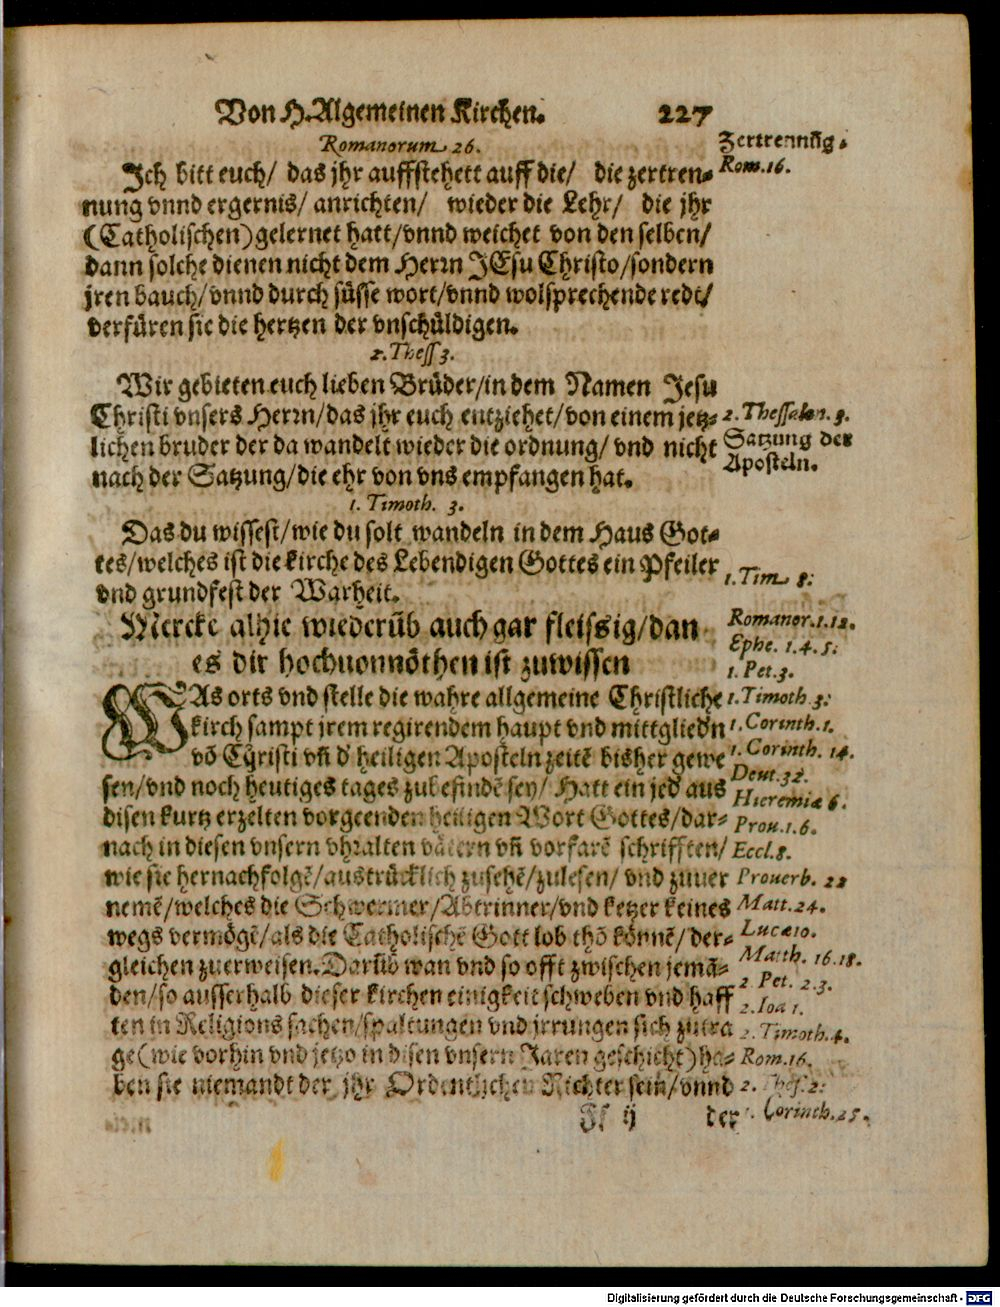 Von H. Algemeinen Kirchen. 227
Romanorum 26.
Ich bitt euch/ das jhr auffstehett auff die/ die zertren-
nung vnnd ergernis/ anrichten/ wieder die Lehr/ die jhr
(Catholischen) gelernet hatt/ vnnd weichet von den selben/
dann solche dienen nicht dem Herrn JEsu Christo/ sondern
jren bauch/ vnnd durch süsse wort/ vnnd wolsprechende rede/
verfüren sie die hertzen der vnschüldigen.
Zertrennũg.
Rom. 16.
2. Thess 3.
Wir gebieten euch lieben Brüder/ in dem Namen Jesu
Christi vnsers Herrn/ das jhr euch entziehet/ von einem jetz-
lichen bruder der da wandelt wieder die ordnung/ vnd nicht
nach der Satzung/ die ehr von vns empfangen hat.
2. Thessalon. 3.
Satzung der
Aposteln.
1. Timoth. 3.
Das du wissest/ wie du solt wandeln in dem Haus Got-
tes/ welches ist die kirche des Lebendigen Gottes ein Pfeiler
vnd grundfest der Warheit.
Mercke alhie wiederũb auch gar fleissig/ dan
es dir hochuonnöthen ist zuwissen
WAs orts vnd stelle die wahre allgemeine Christliche
kirch sampt jrem regirendem haupt vnd mittgliedn
võ Christi vñ d' heiligen Aposteln zeitẽ bisher gewe
sen/ vnd noch heutiges tages zubefindẽ sey/ Hatt ein jed' aus
disen kurtz erzelten vorgeenden heiligen Wort Gottes/ dar-
nach in diesen vnsern vhralten vätern vñ vorfarẽ schrifften/
wie sie hernachfolgẽ/ austrücklich zusehẽ/ zulesen/ vnd zuuer
nemẽ/ welches die Schwermer/ Abtrinner/ vnd ketzer keines
wegs vermögẽ/ als die Catholischẽ Gott lob thõ könnẽ/ der-
gleichen zuerweisen. Darũb wan vnd so offt zwischen jemã-
den/ so ausserhalb dieser kirchen einigkeit schweben vnd haff
ten in Religions sachen/ spaltungen vnd jrrungen sich zutra
ge (wie vorhin vnd jetzo in disen vnsern Jaren geschicht) ha-
ben sie niemandt der jhr Ordentlicher Richter sein/ vnnd
1. Tim. 8:
Romanor. 1. 12.
Ephe. 1. 4. 5:
1. Pet. 3.
1. Timoth 3:
1. Corinth. 1.
1. Corinth. 14.
Deut. 32.
Hieremiæ 6.
Prou. 1. 6.
Eccl. 8.
Prouerb. 22
Matt. 24.
Lucæ 10.
Matth. 16. 18.
2 Pet. 2. 3.
2. Ioa 1.
2. Timoth. 4.
Rom. 16.
2. Thes. 2:
Corinth. 25.
Ff ij der
Digitalisierung gefördert durch die Deutsche Forschungsgemeinschaft - DFG